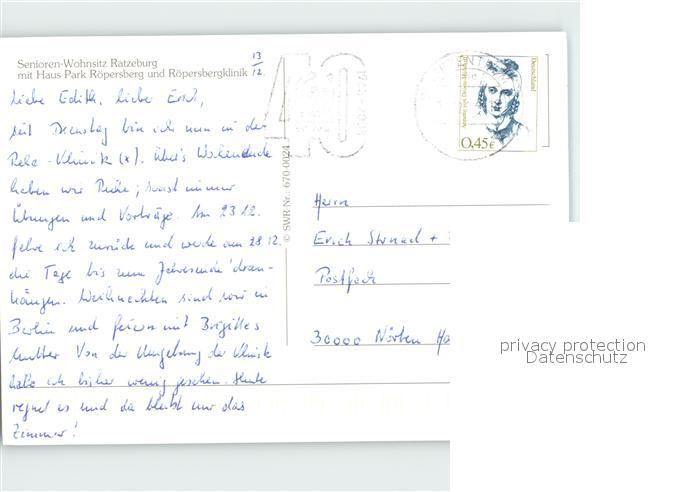 Senioren-Wohnsitz Ratzeburg
mit Haus Park Röpersberg und Röpersbergklinik
13/12.
Liebe Edith, lieber Erich,
seit Dienstag bin ich nun in der
Reha-Klinik (x). Über's Wochenende
haben wir Ruhe; sonst immer
Übungen und Vorträge. Am 23.12.
fahre ich zurück und werde am 28.12.
die Tage bis zum Jahresende 'dran-
hängen. Weihnachten sind wir in
Berlin und feiern mit Brigittes
Mutter. Von der Umgebung der Klinik
habe ich bisher wenig gesehen. Heute
regnet es und da bleibt nur das
Zimmer!
© SWR-Nr.: 670-0024
40
Deutschland
Annette von Droste-Hülshoff
0,45€
Herrn
Erich +
Postfach
30000 Nörten Ha
privacy protection
Datenschutz